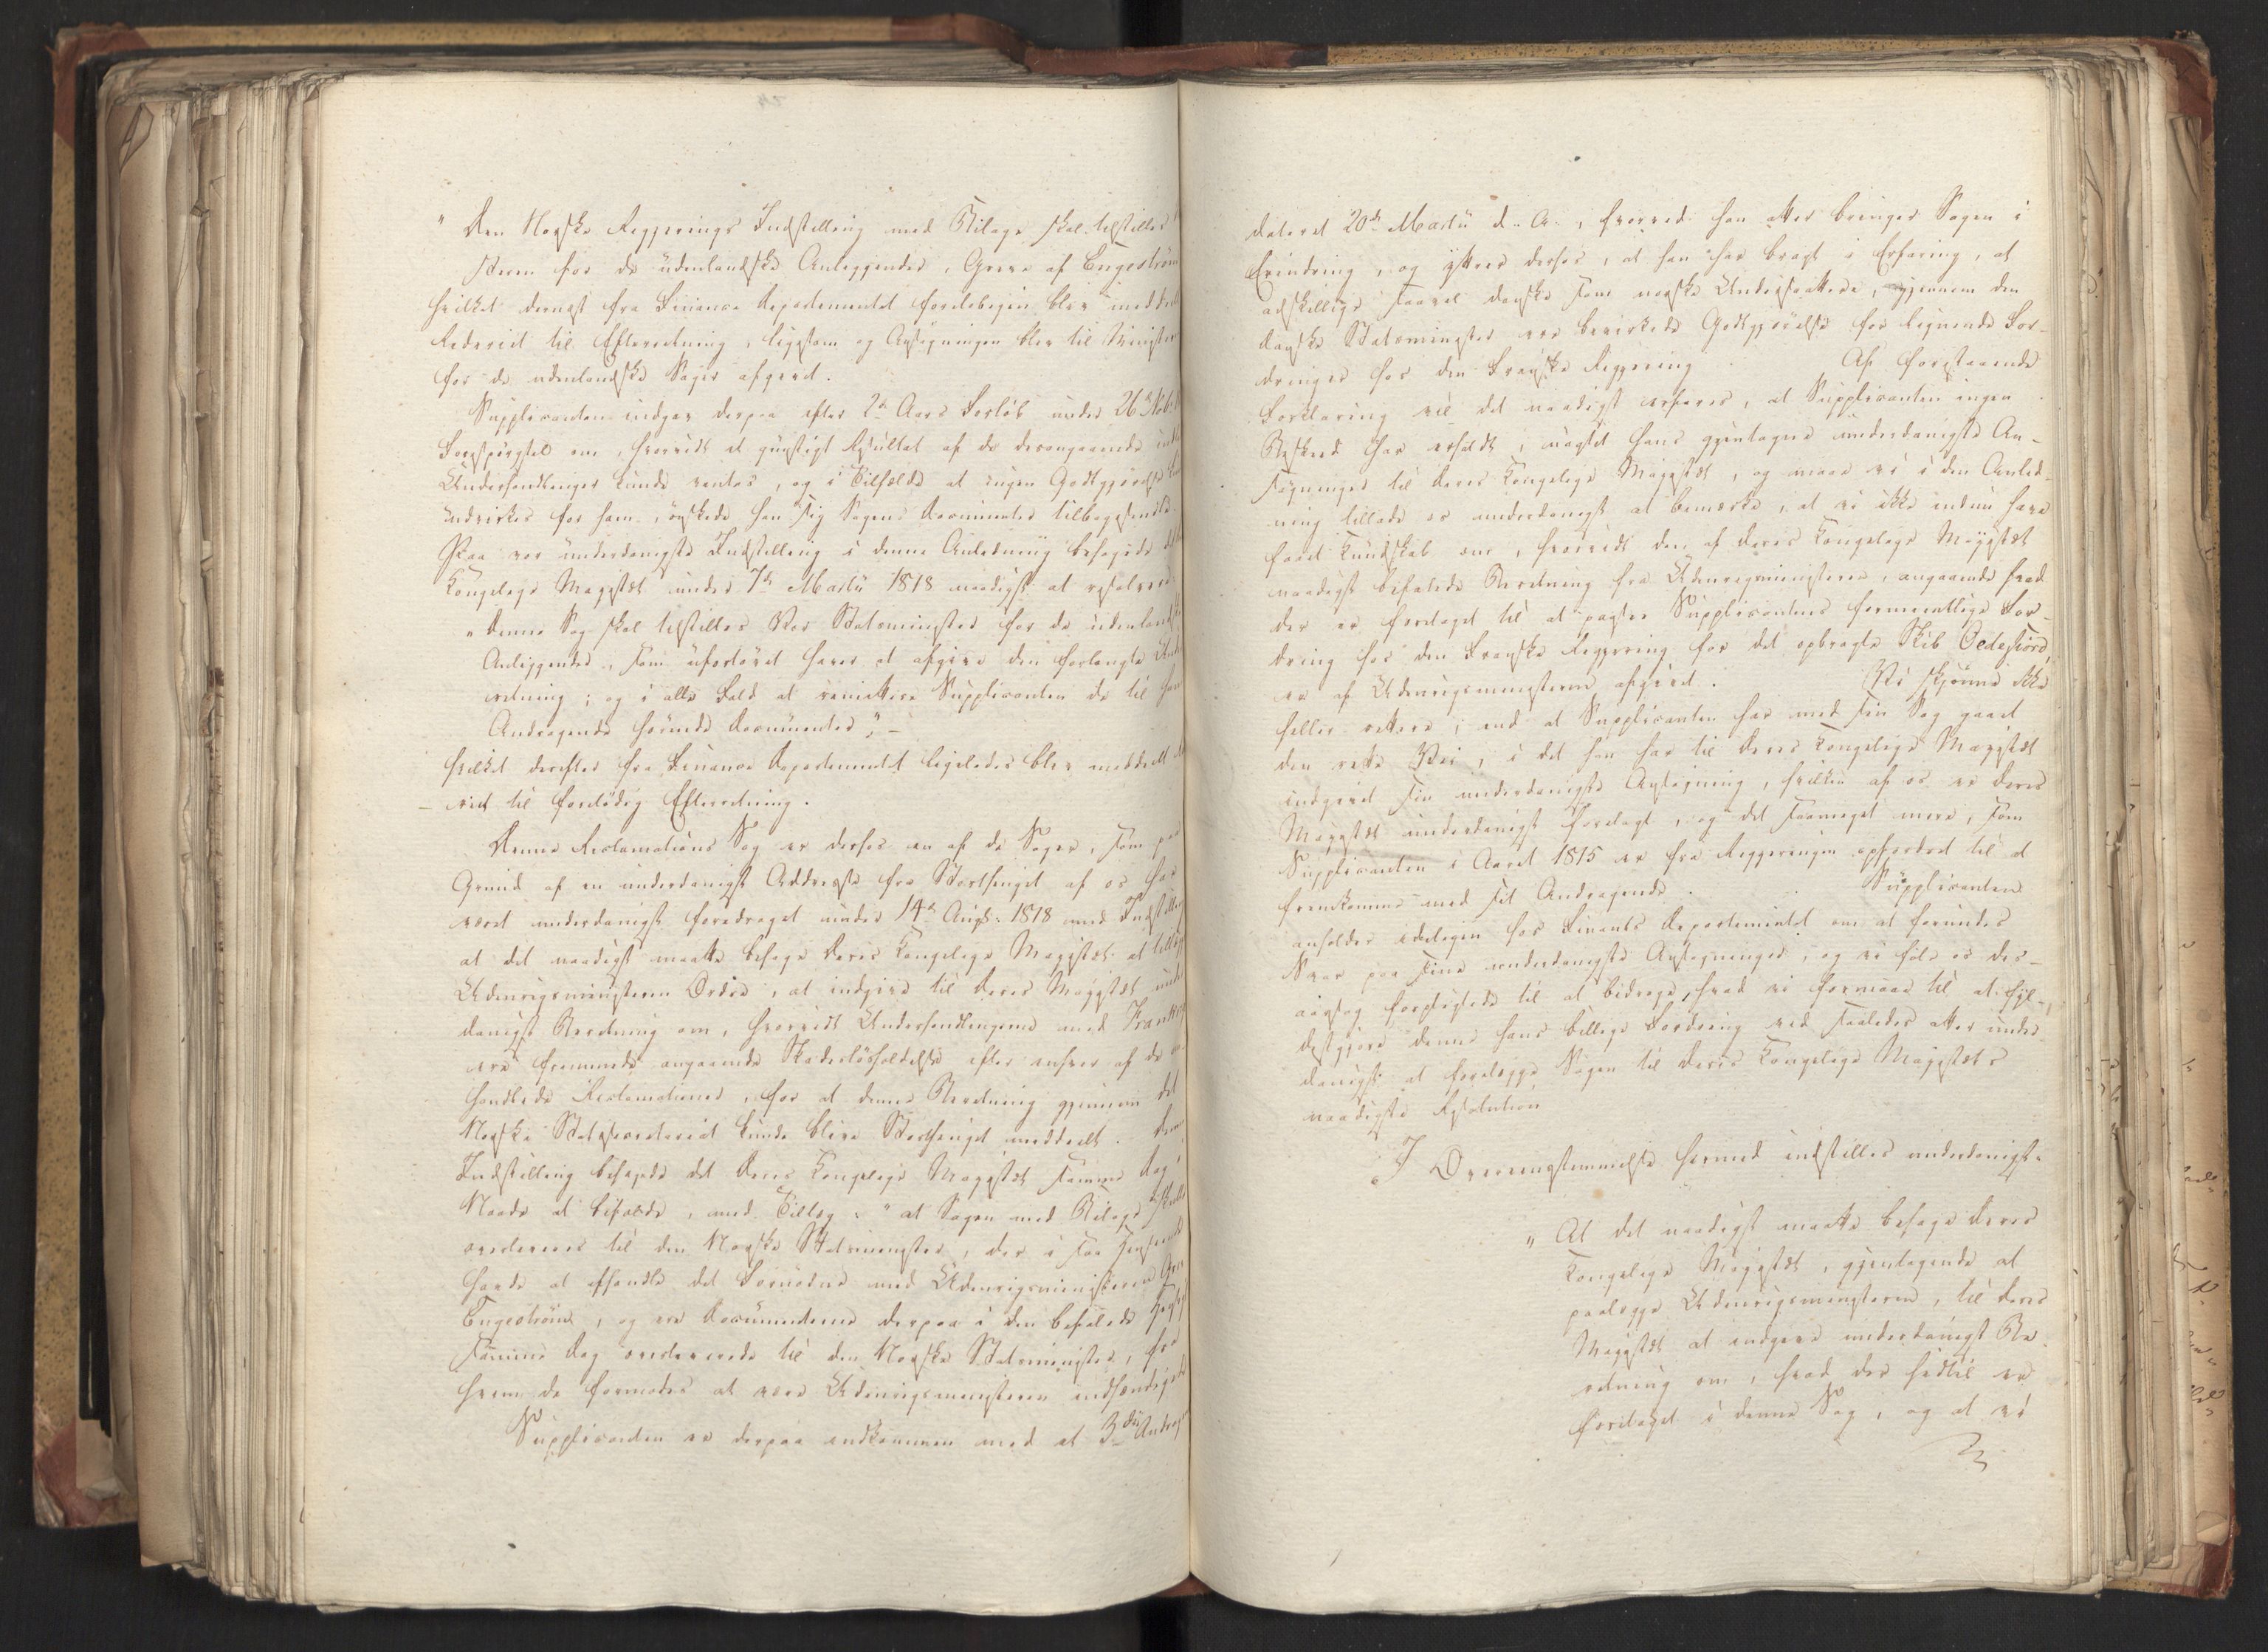 „Den Norske Regjerings Indstilling med Bilage skal tilstilles
for de udenlandske Anliggender, Greve af Engeström
hvilket dernæst fra Finance Departementet foreløbigen blev meddeelt
Rederiet til Efterretning, ligesom og Ansøgningen blev til Ministeren
for de udenlandske Sager afgivet.
Supplicanten indgav derpaa efter 2de Aars Forløb under 26de Nobr
Forespørgsel om, hvorvidt et gunstigt Resultat af de desangaaende
Underhandlinger kunde ventes, og i Tilfælde at ingen Godtgjørelse
udvirkes for ham, ønskede han sig Sagens Documenter tilbagesendte.
Paa vor underdanigste Indstilling i denne Anledning behagede det
Kongelige Majestæt under 7de Martii 1818 naadigst at resolvere
„Denne Sag skal tilstilles Vor Statsminister for de udenlandske
Anliggender, som ufortøvet haver at afgive den forlangte Under-
retning; og i alle Fald at remittere Supplicanten de til hans
Andragende hørende Documenter„ –
hvilket derefter fra Finance Departementet ligeledes blev meddeelt
– riet til foreløbig Efterretning.
Denne Reclamations Sag er derfor en af de Sager, som paa
Grund af en underdanigst Addresse fra Storthinget af os har
været underdanigst foredraget under 14de Augs: 1818 med Indstilling
at det naadigst maatte behage Deres Kongelige Majestæt at tillægge
Udenrigsministeren Ordre, at indgive til Deres Majestæt under-
danigst Beretning om, hvorvidt Underhandlingerne med Frankrig
ere fremmede angaaende Skadesløsholdelse efter enhver af de
handlede Reclamationer, for at denne Beretning gjennem det
Norske Statssecretariat kunde blive Storthinget meddeelt. Denne
Indstilling behagede det Deres Kongelige Majestæt samme Dag i
Naade at bifalde, med Tillæg: „at Sagen med Bilage skulde
overleveres til den Norske Statsminister, der i saa Henseende
havde at afhandle det Fornødne med Udenrigsministeren Greve
Engeström, og ere Documenterne derpaa i den befalede Henseende
samme Dag overleverede til den Norske Statsminister, fra
hvem de formodes at være Udenrigsministeren indhændigede
Supplicanten er derpaa indkommen med et 3die Andragende
dateret 20de Martii d. A., hvorved han atter bringer Sagen i
Erindring, og yttrer derhos, at han har bragt i Erfaring, at
adskillige saavel danske som norske Undersaattere, gjennem den
danske Statsminister ere bevirkede Godtgjørelse for lignende For-
dringer hos den Franske Regjering. Af forestaaende
Forklaring vil det naadigst erfares, at Supplicanten ingen
Beskeed har erholdt, uagtet hans gjentagne underdanigste An-
søgninger til Deres Kongelige Majestæt, og maae vi i den Anled-
ning tillade os underdanigst at bemærke, at vi ikke endnu have
faaet Kundskab om, hvorvidt den af Deres Kongelige Majestæt
naadigst befalede Beretning fra Udenrigsministeren, angaaende hvad
der er foretaget til at paastaae Supplicantens formeentlige For-
dring hos den Franske Regjering for det opbragte Skib Oedesfiord,
er af Udenrigsministeren afgivet. Vi skjønne ikke
heller rettere, end at Supplicanten har med sin Sag gaaet
den rette Vei, i det han har til Deres Kongelige Majestæt
indgivet sin underdanigste Ansøgning, hvilken af os er Deres
Majestæt underdanigst forelagt, og det saameget mere, som
Supplicanten i Aaret 1815 er fra Regjeringen opfordret til at
fremkomme med sit Andragende. Supplicanten
anholder ideligen hos Finants Departementet om at forundes
Svar paa sine underdanigste Ansøgninger, og vi føle os des-
aarsag forpligtede til at bidrage, hvad vi formaae til at fyl-
destgjøre denne hans billige Fordring ved saaledes atter under-
danigst at forelægge Sagen til Deres Kongelige Majestæts
naadigste Resolution
I Overeensstemmelse hermed indstilles underdanigst:
„At det naadigst maatte behage Deres
Kongelige Majestæt, gjentagende at
paalægge Udenrigsministeren, til Deres
Majestæt at indgive underdanigst Be-
retning om, hvad der hidtil er
foretaget i denne Sag, og at vi